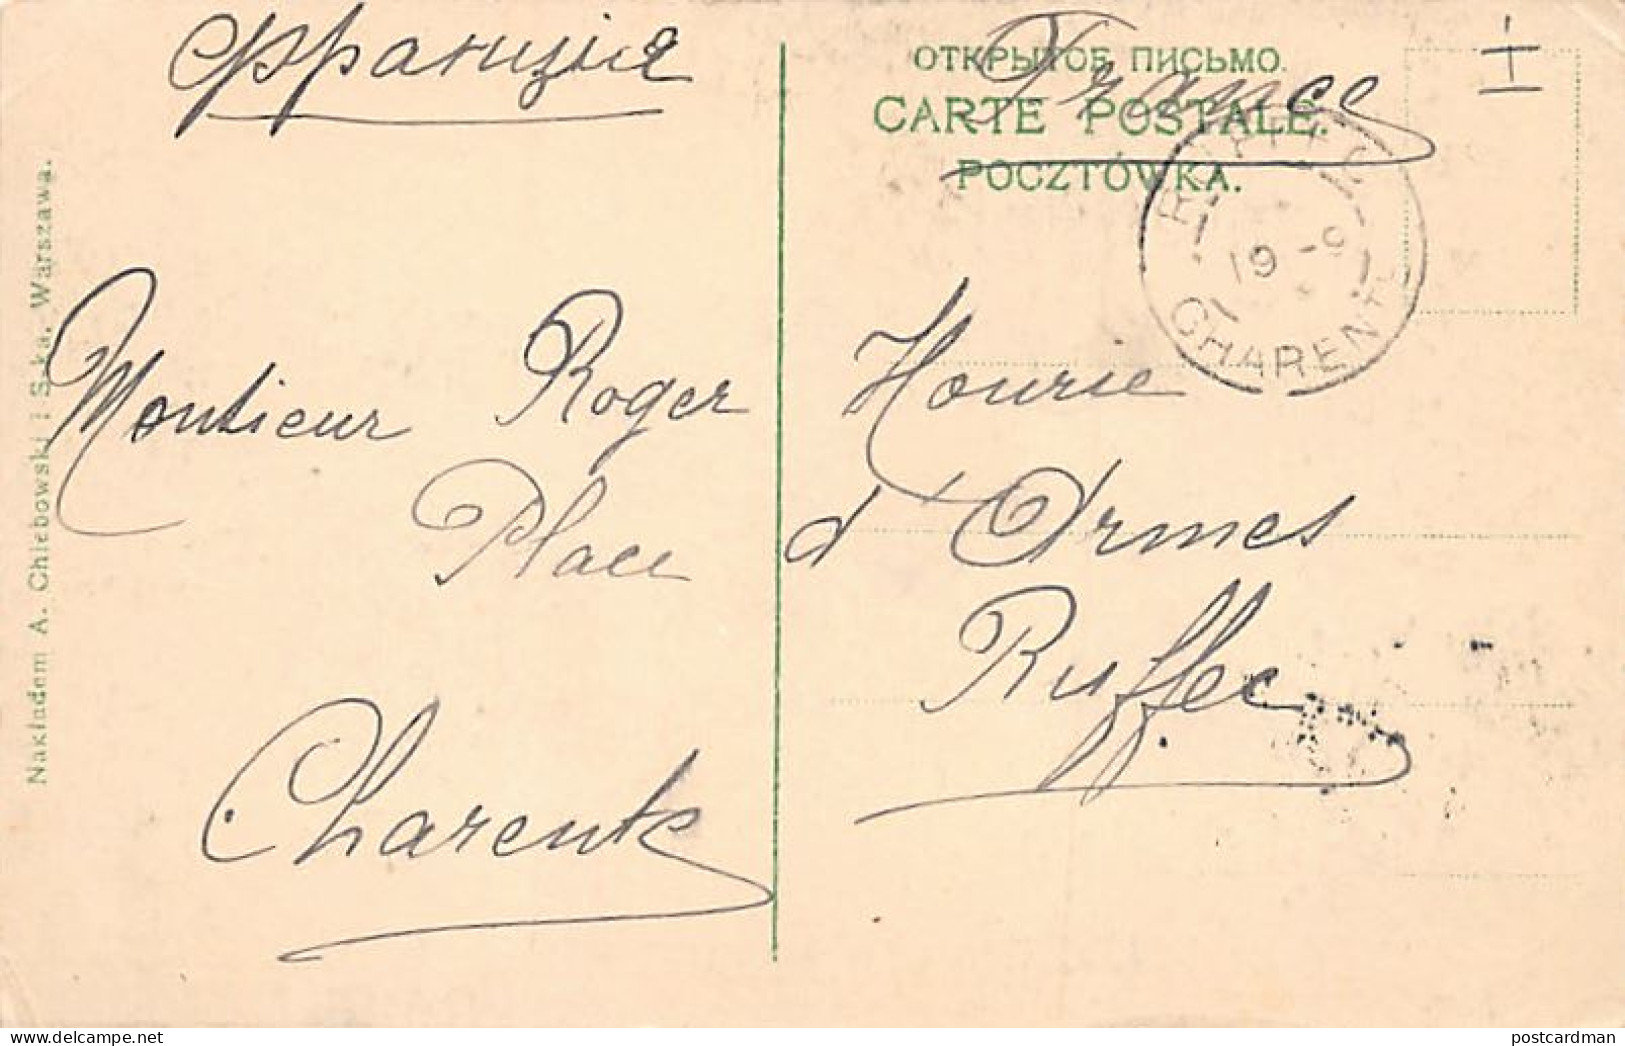 Франузіе
France
ОТКРЫТОЕ ПИСЬМО.
CARTE POSTALE.
POCZTÓWKA.
RUFFEC
19 -9
CHARENTE
Monsieur Roger Hourie
Place d'Ormes
Ruffec
Charente
Nakładem A. Chlebowski i S-ka. Warszawa.
delcampe.net
postcardman